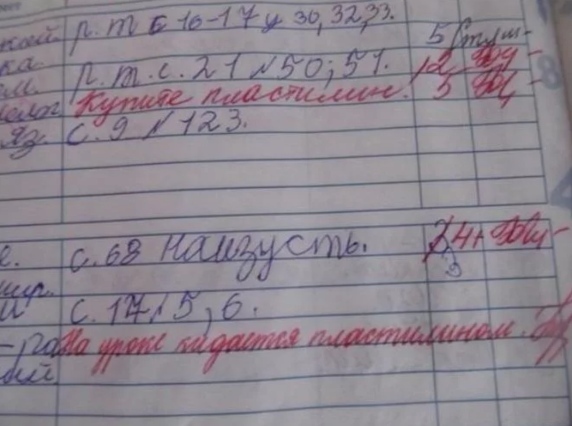 р.т с 16-17 у 30, 32, 33.
ка. р.т.с. 21 №50; 51. 5
Купите пластилин. 5
яз. с. 9 №123.
с. 68 наизусть.
с. 17 №5, 6.
На уроке кидается пластилином.